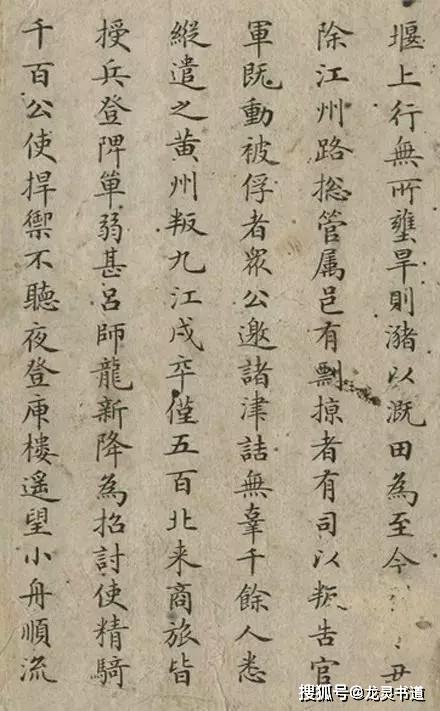 堰上行無所壅旱則瀦以溉田為至今
除江州路揔管属邑有剽掠者有司以叛告官
軍既動被俘者衆公邀諸津詰無辜千餘人悉
縱遣之黄州叛九江戍卒僅五百北来商旅皆
授兵登陴单弱甚吕師龍新降為招討使精騎
千百公使捍禦不聽夜登庾樓遥望小舟順流
搜狐号@龙灵书道